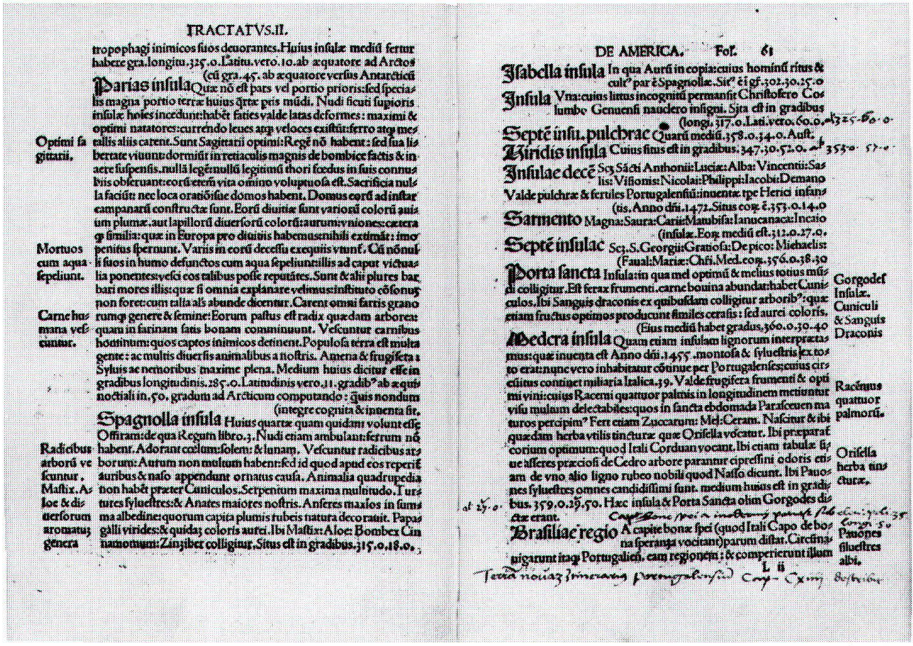 TRACTATVS.II.
tropophagi inimicos suos deuorantes. Huius insulæ mediũ fertur
habere gra. longitu. 325.0. Latitu. vero. 10. ab æquatore ad Arctos
(cũ gra. 45. ab æquatore versus Antarcticũ
Parias insula Quæ nõ est pars vel portio prioris: sed specia-
lis magna portio terræ huius mũdi. Nudi sicuti supioris
insulæ hoīes incedunt: habēt facies valde latas deformes: maximi &
optimi natatores: currēdo leues atq veloces existūt: ferro atq me-
tallis aliis carent. Sunt Sagittarii optimi: Regē nõ habent: sed sua li-
bertate viuunt: dormiūt in retiaculis magnis de bombice factis & in
aere suspensis. nullā legē: nullū legitimū thori fœdus in suis connu-
biis obseruant: eorū etem̃ vita omnino voluptuosa est. Sacrificia nul-
la faciūt: nec loca oratiõisue domos habent. Domus eorū ad instar
campanarū constructæ sunt. Eorū diuitiæ sunt variorū colorū auiū
um plumæ. aut lapillorū diuersorū colorū: aurum: vniones: cætera
q similia: quæ in Europa pro diuitiis habemus: nihil extimāt: imo
penitus spernunt. Variis in eorū decessu exequiis vtunt̃. Cũ nõnul
li suos in humo defunctos cum aqua sepeliunt: illis ad caput victua-
lia ponentes: vesci eos talibus posse reputātes. Sunt & alii plures bar
bari mores illis: quæ si omnia explanare velimus: instituto cõsonū
non foret: cum talia als abunde dicentur. Carent omni farris grano
rumq genere & semine: Eorum pastus est radix quædam arborea:
quam in farinam satis bonam comminuunt. Vescuntur carnibus
hominum: quos captos inimicos detinent. Populosa terra est multa
gente: ac multis diuersis animalibus a nostris. Amena & frugifera:
Syluis ac nemoribus maxime plena. Medium huius dicitur esse in
gradibus longitudinis. 285.0. Latitudinis vero. 11. gradib' ab æqui
noctiali in. 50. gradum ad Arcticum computando: q̃uis nondum
(integre cognita & inuenta sit.
Spagnolla insula Huius quartæ quam quidam volunt esse
Offiram: de qua Regum libro. 3. Nudi etiam ambulant: ferrum nõ
habent. Adorant cœlum: solem: & lunam. Vescuntur radicibus ar-
borum: Aurum non multum habent: sed id quod apud eos reperit̃
auribus & naso appendunt ornatus causa. Animalia quadrupedia
non habēt præter Cuniculos. Serpentium maxima multitudo. Tur-
tures syluestres: & Anates maiores nostris. Anseres maxios in sum
ma albedine: quorum capita plumis rubeis natura decorauit. Papa-
galli virides: & quidā: coloris aurei. Ibi Mastix: Aloe: Bombex Cin
namomum: Zinziber colligitur. Situs est in gradibus. 315.0.18.0.
Optimi sa
gittarii.
Mortuos
cum aqua
sepeliunt.
Carne hu
mana ves
cuntur.
Radicibus
arborū ve
scuntur.
Mastix. A-
loe & di
uersorum
aromatum
genera
DE AMERICA. Fol. 61
Isabella insula In qua Aurū in copia: cuius hominū ritus &
cult' par ē Spagnollæ. Sit' ē ī gf. 302.30.25.0
Insula Vna: cuius littus incognitū permansit Christofero Co-
lumbo Genuensi nauclero insigni. Sita est in gradibus
(longi. 317.0. Lati. vero. 60.0. al 325.60.0.
Septē insu. pulchræ Quarū mediū. 358.0.34.0. Aust.
Viridis insula Cuius situs est in gradibus. 347.30.52.0. al 353.0. 57.0.
Insulae decē Scz Sācti Anthonii: Luciæ: Alba: Vincentii: Sa-
lis: Visionis: Nicolai: Philippi: Iacobi: Demano
Valde pulchræ & fertiles Portugalensiū: inuentæ tpe Herici infan-
(tis. Anno dñi. 1472. Situs eor. ē. 353.0.14.0
Sarmento Magna: Saura: Carii: Matubisa: Ianucanaca: Incaio
(insulæ. Eor. mediū est. 312.0.27.0.
Septē insulae Scz. S. Georgii: Gratiosa: De pico: Michaelis:
(Faual: Mariæ: Chri. Med. eor. 356.0.38.30
Porta sancta Insula: in qua mel optimū & melius totius mū-
di colligitur. Est ferax frumenti. carne bouina abundat: habet Cuni
culos. Ibi Sanguis draconis ex quibusdam colligitur arborib': quæ
etiam fructus optimos producunt similes cerasis: sed aurei coloris.
(Eius mediū habet gradus. 360.0.30.40
Medera insula Quam etiam insulam lignorum interpræta
mus: quæ inuenta est Anno dñi. 1455. montosa & syluestris ex to-
to erat: nunc vero inhabitatur cõitue per Portugalenses: cuius cir-
cūitus continet miliaria Italica. 39. Valde frugifera frumenti & opti
mi vini: cuius Racemi quattuor palmis in longitudinem metiuntur
visu multum delectabiles: quos in sancta ebdomada Parasceuen ma
turos percipim' Fert etiam Zuccarum: Mel: Ceram. Nascitur & ibi
quædam herba vtilis tincturæ quæ Orisella vocatur. Ibi præparāt
corium optimum: quod Itali Corduan vocant. Ibi etiam tabulæ si-
ue asseres præciosi de Cedro arbore parantur cipressini odoris eti-
am de vno alio ligno rubeo nobili quod Nasso dicunt. Ibi Pauo-
nes syluestres omnes candidissimi sunt. medium huius est in gradi-
bus. 359.0.29.50. Hæc insula & Porta Sancta olim Gorgodes di-
ctæ erant.
Brasiliae regio A capite bonæ spei (quod Itali Capo de bo-
na speranza vocitant) parum distat. Circūna-
uigarunt itaq Portugalien. eam regionem: & comperierunt illum
L ii
Gorgodes
Insulæ.
Cuniculi
& Sanguis
Draconis
Racemus
quattuor
palmorū.
Orisella
herba tin-
cturæ.
Pauones
siluestres
albi.
Terra nova